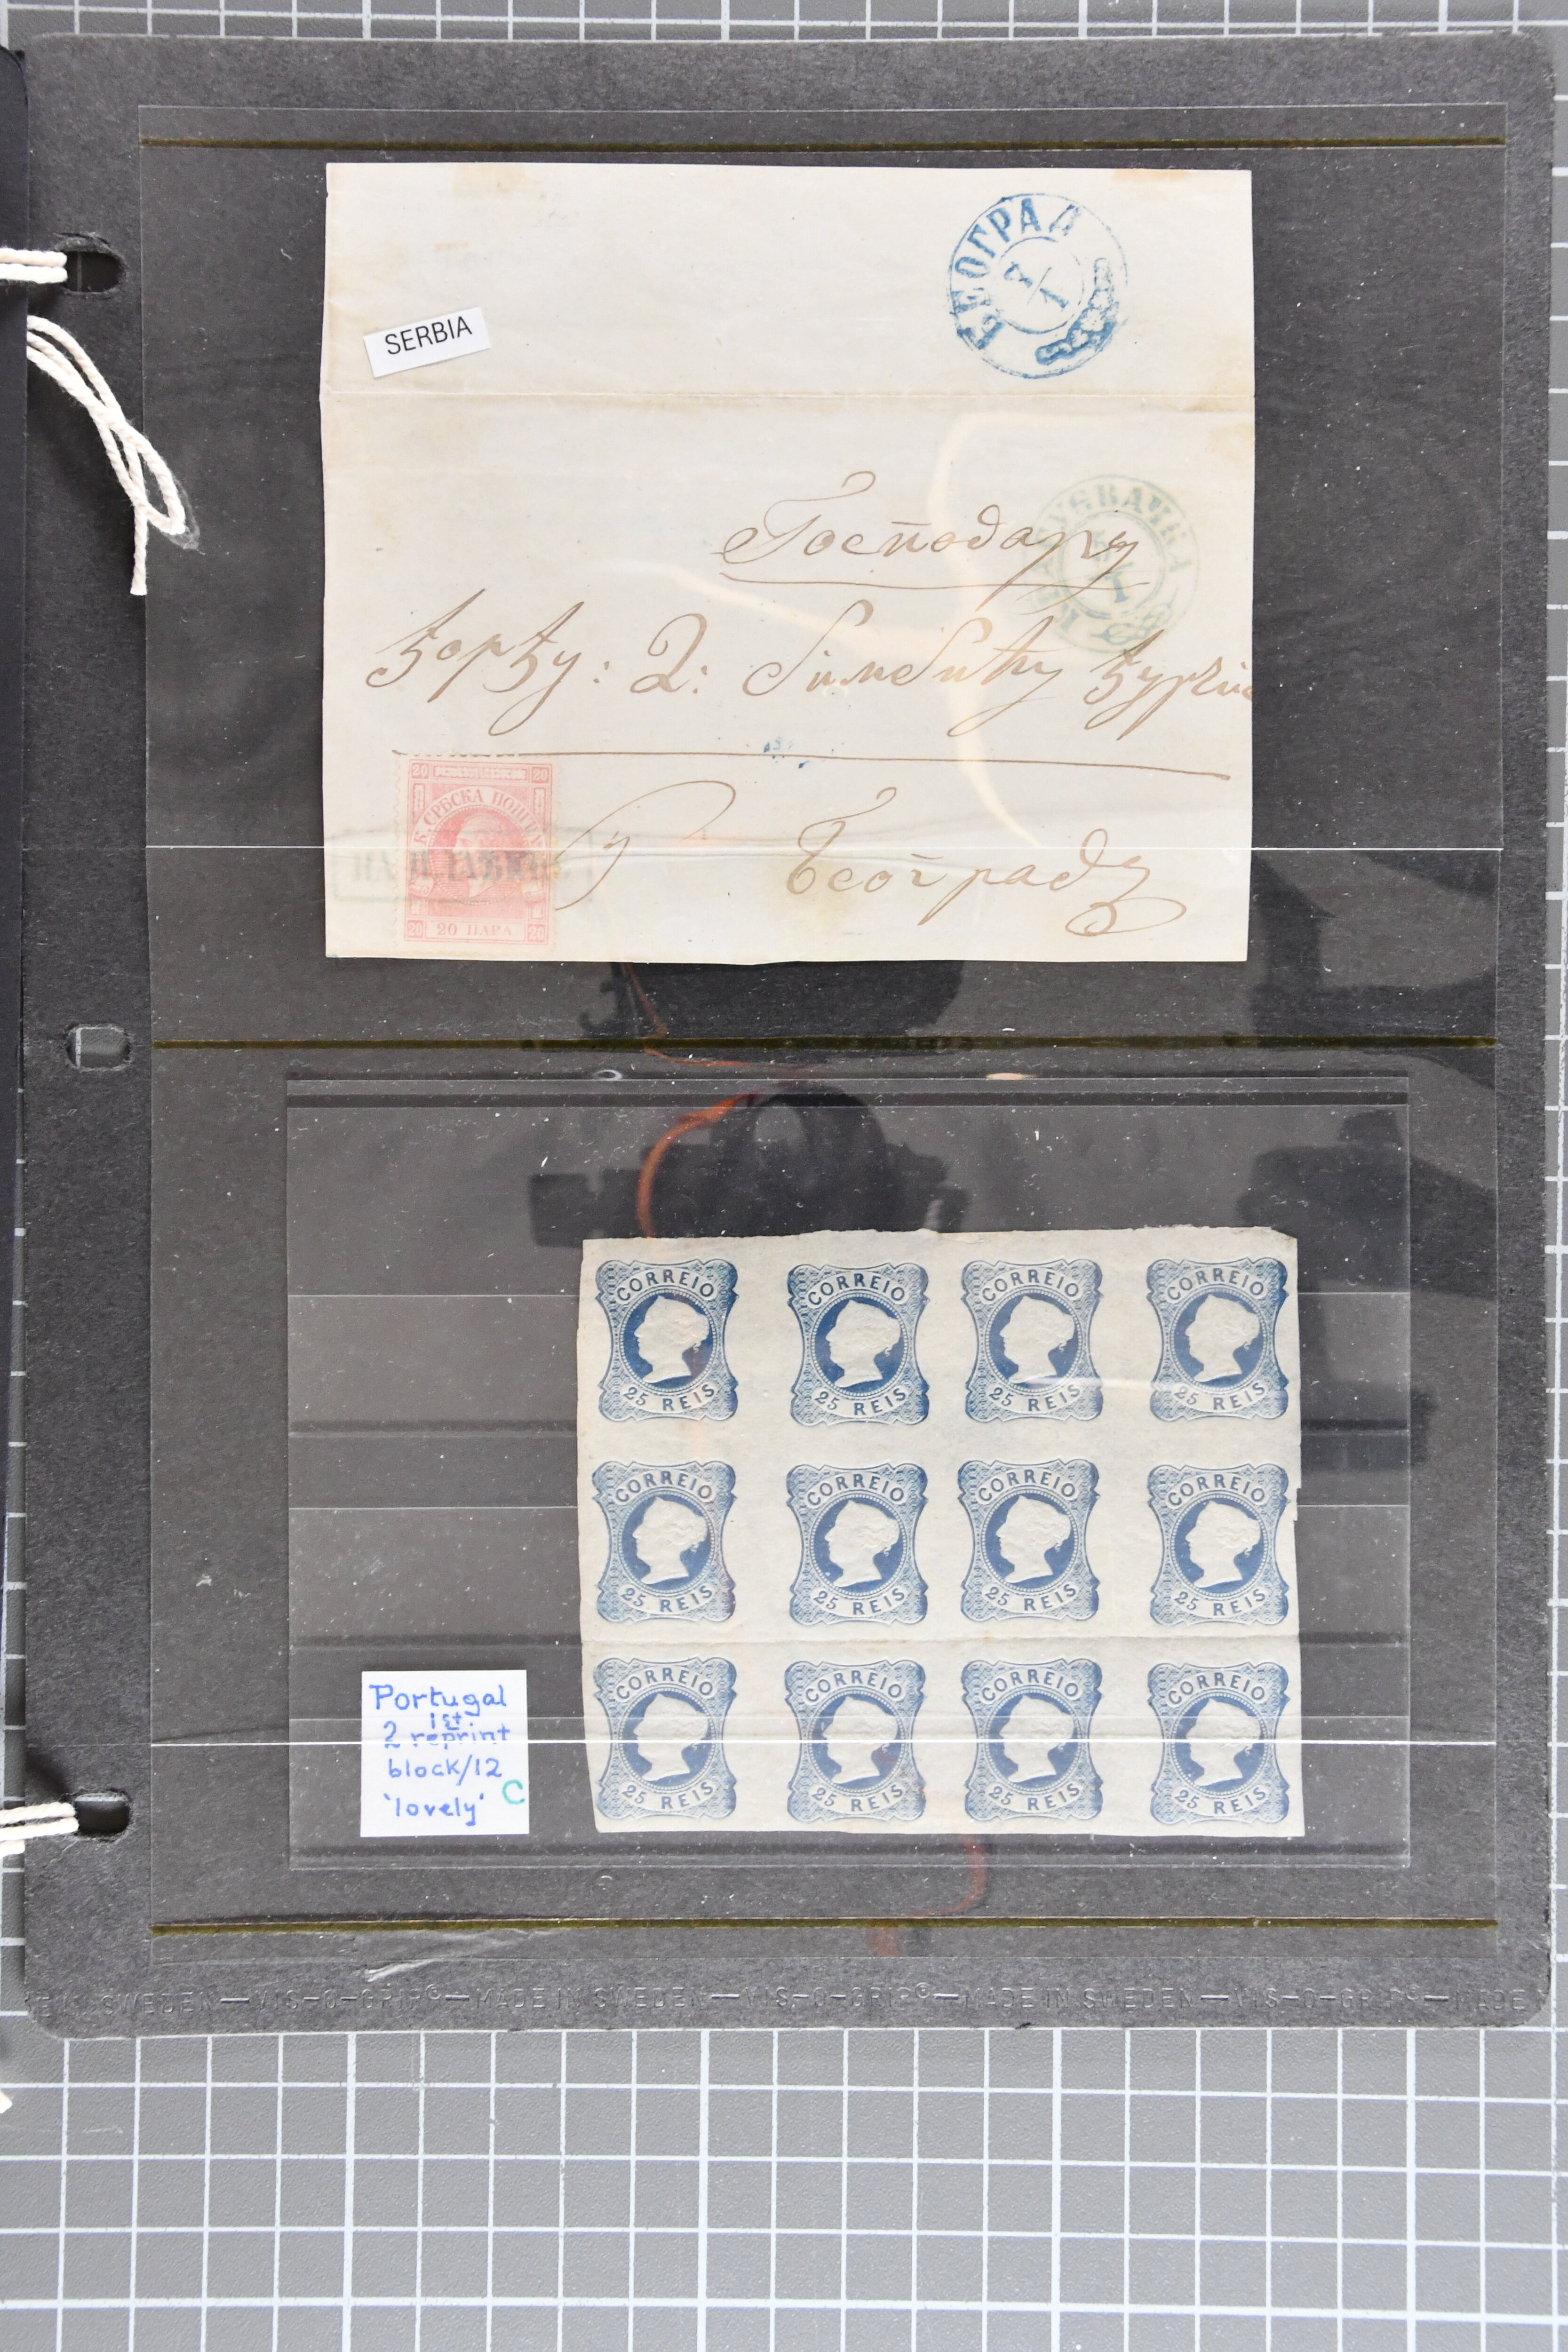 БЕОГРАД
7/1
SERBIA
Господару
Ђорђу: Д:
У Београду
20 20
К. СРБСКА ПОШТА
20 ПАРА 20
CORREIO CORREIO CORREIO CORREIO
25 REIS 25 REIS 25 REIS 25 REIS
CORREIO CORREIO CORREIO CORREIO
25 REIS 25 REIS 25 REIS 25 REIS
CORREIO CORREIO CORREIO CORREIO
25 REIS 25 REIS 25 REIS 25 REIS
Portugal
1st
2 reprint
block/12
'lovely' C
SWEDEN—VIS-O-GRIP©—MADE IN SWEDEN—VIS-O-GRIP©—MADE IN SWEDEN—VIS-O-GRIP©—MADE